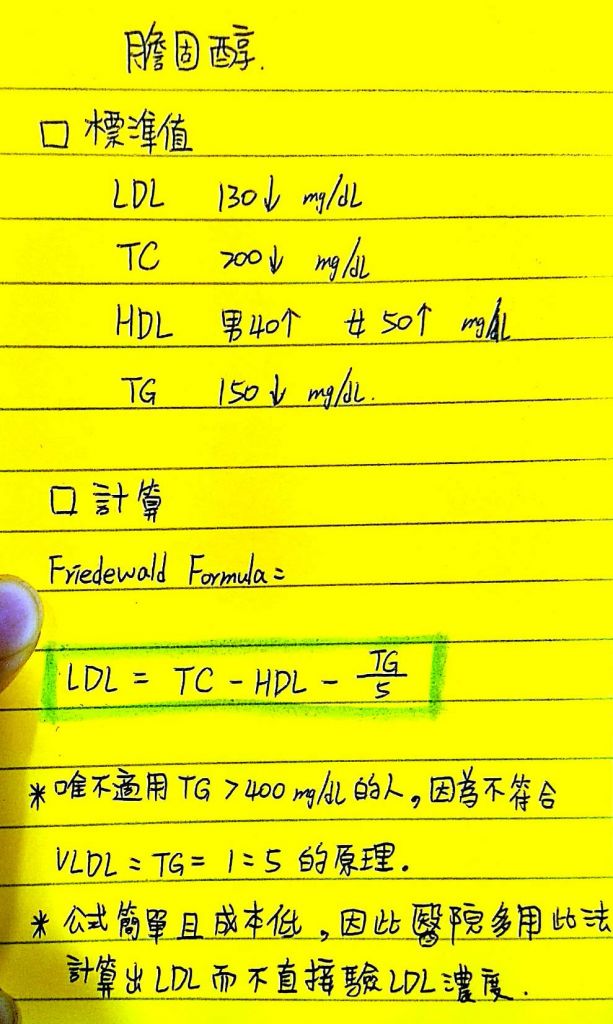 膽固醇.
□ 標準值
LDL 130↓ mg/dL
TC 200↓ mg/dL
HDL 男40↑ 女50↑ mg/dL
TG 150↓ mg/dL.
□ 計算
Friedewald Formula:
LDL = TC - HDL - TG/5
*唯不適用TG>400mg/dL的人,因為不符合
VLDL:TG=1:5的原理.
*公式簡單且成本低,因此醫院多用此法
計算出LDL而不直接驗LDL濃度.